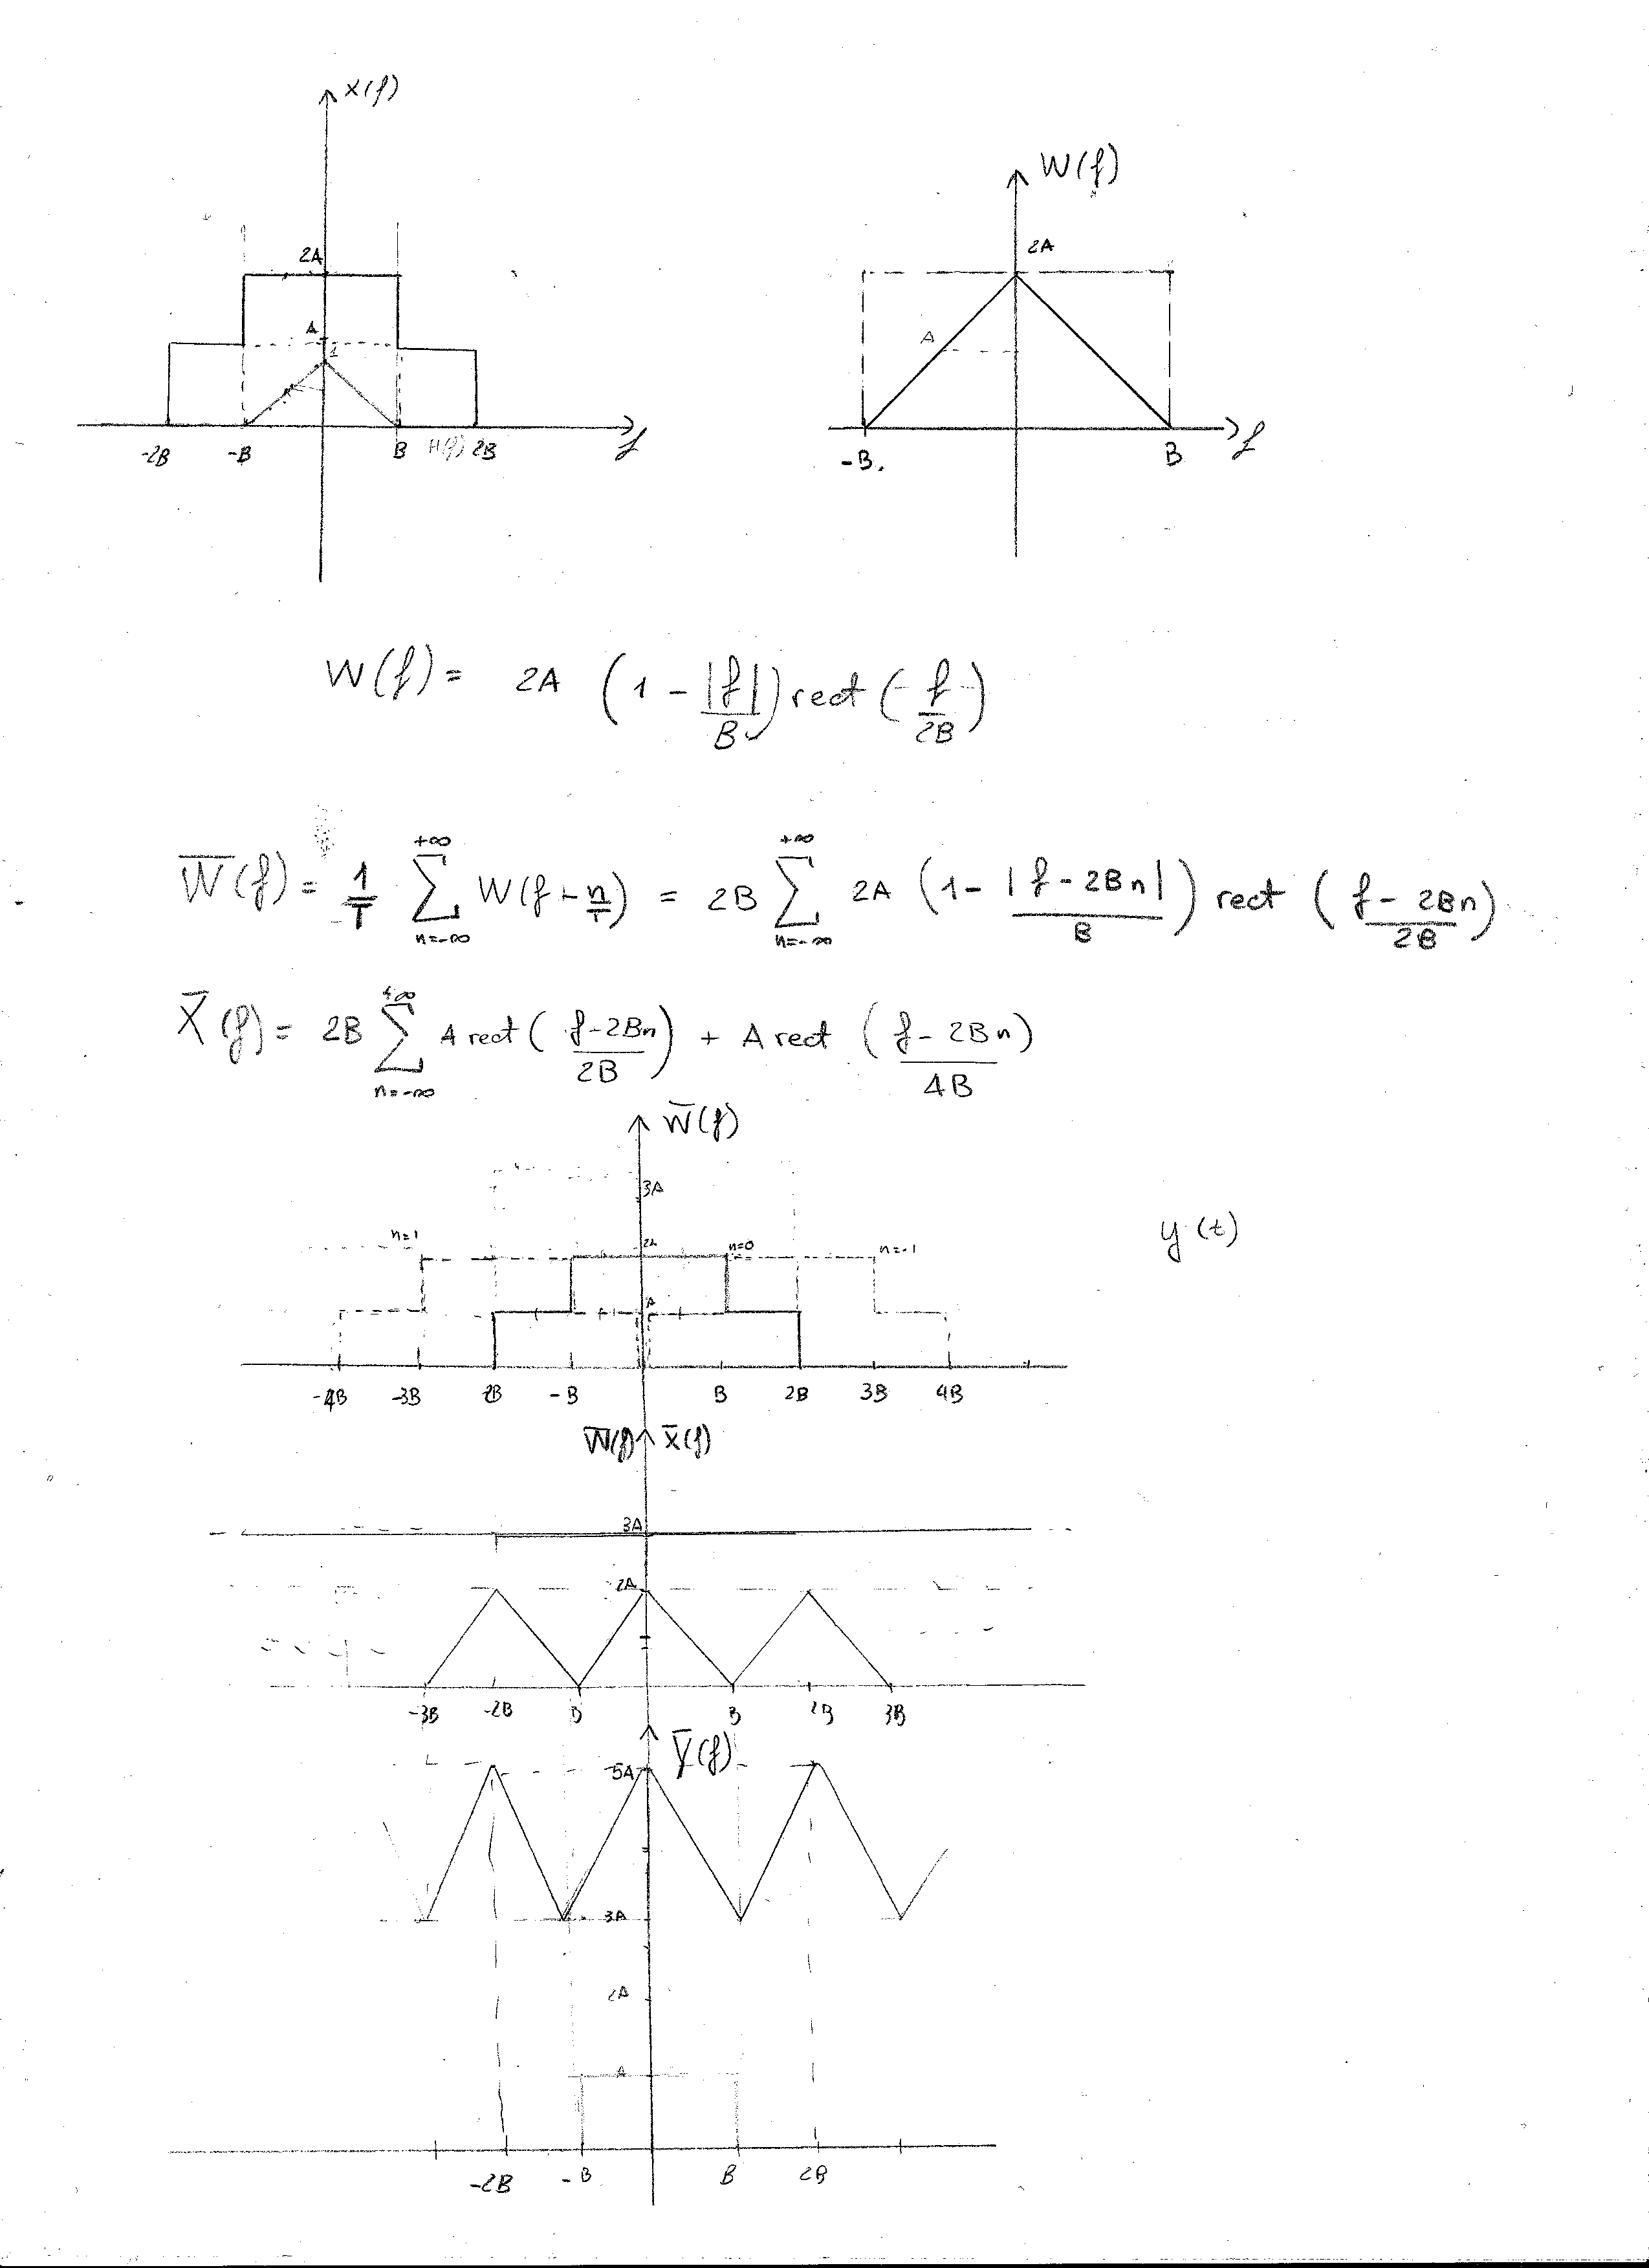 X(f)
W(f)
2A
2A
A
1
A
-2B -B B H(f) 2B f
-B. B f
W(f) = 2A (1 - |f|/B) rect (f/2B)
W̅(f) = 1/T ∑_{n=-∞}^{+∞} W(f - n/T) = 2B ∑_{n=-∞}^{+∞} 2A (1 - |f - 2Bn|/B) rect (f - 2Bn/2B)
X̅(f) = 2B ∑_{n=-∞}^{+∞} A rect (f - 2Bn/2B) + A rect (f - 2Bn/4B)
W̅(f)
3A
n=1 2A n=0 n=-1
y(t)
A
-4B -3B 2B -B B 2B 3B 4B
W̅(f) X̅(f)
3A
2A
-3B -2B B B 2B 3B
Y̅(f)
5A
3A
2A
A
-2B -B B 2B